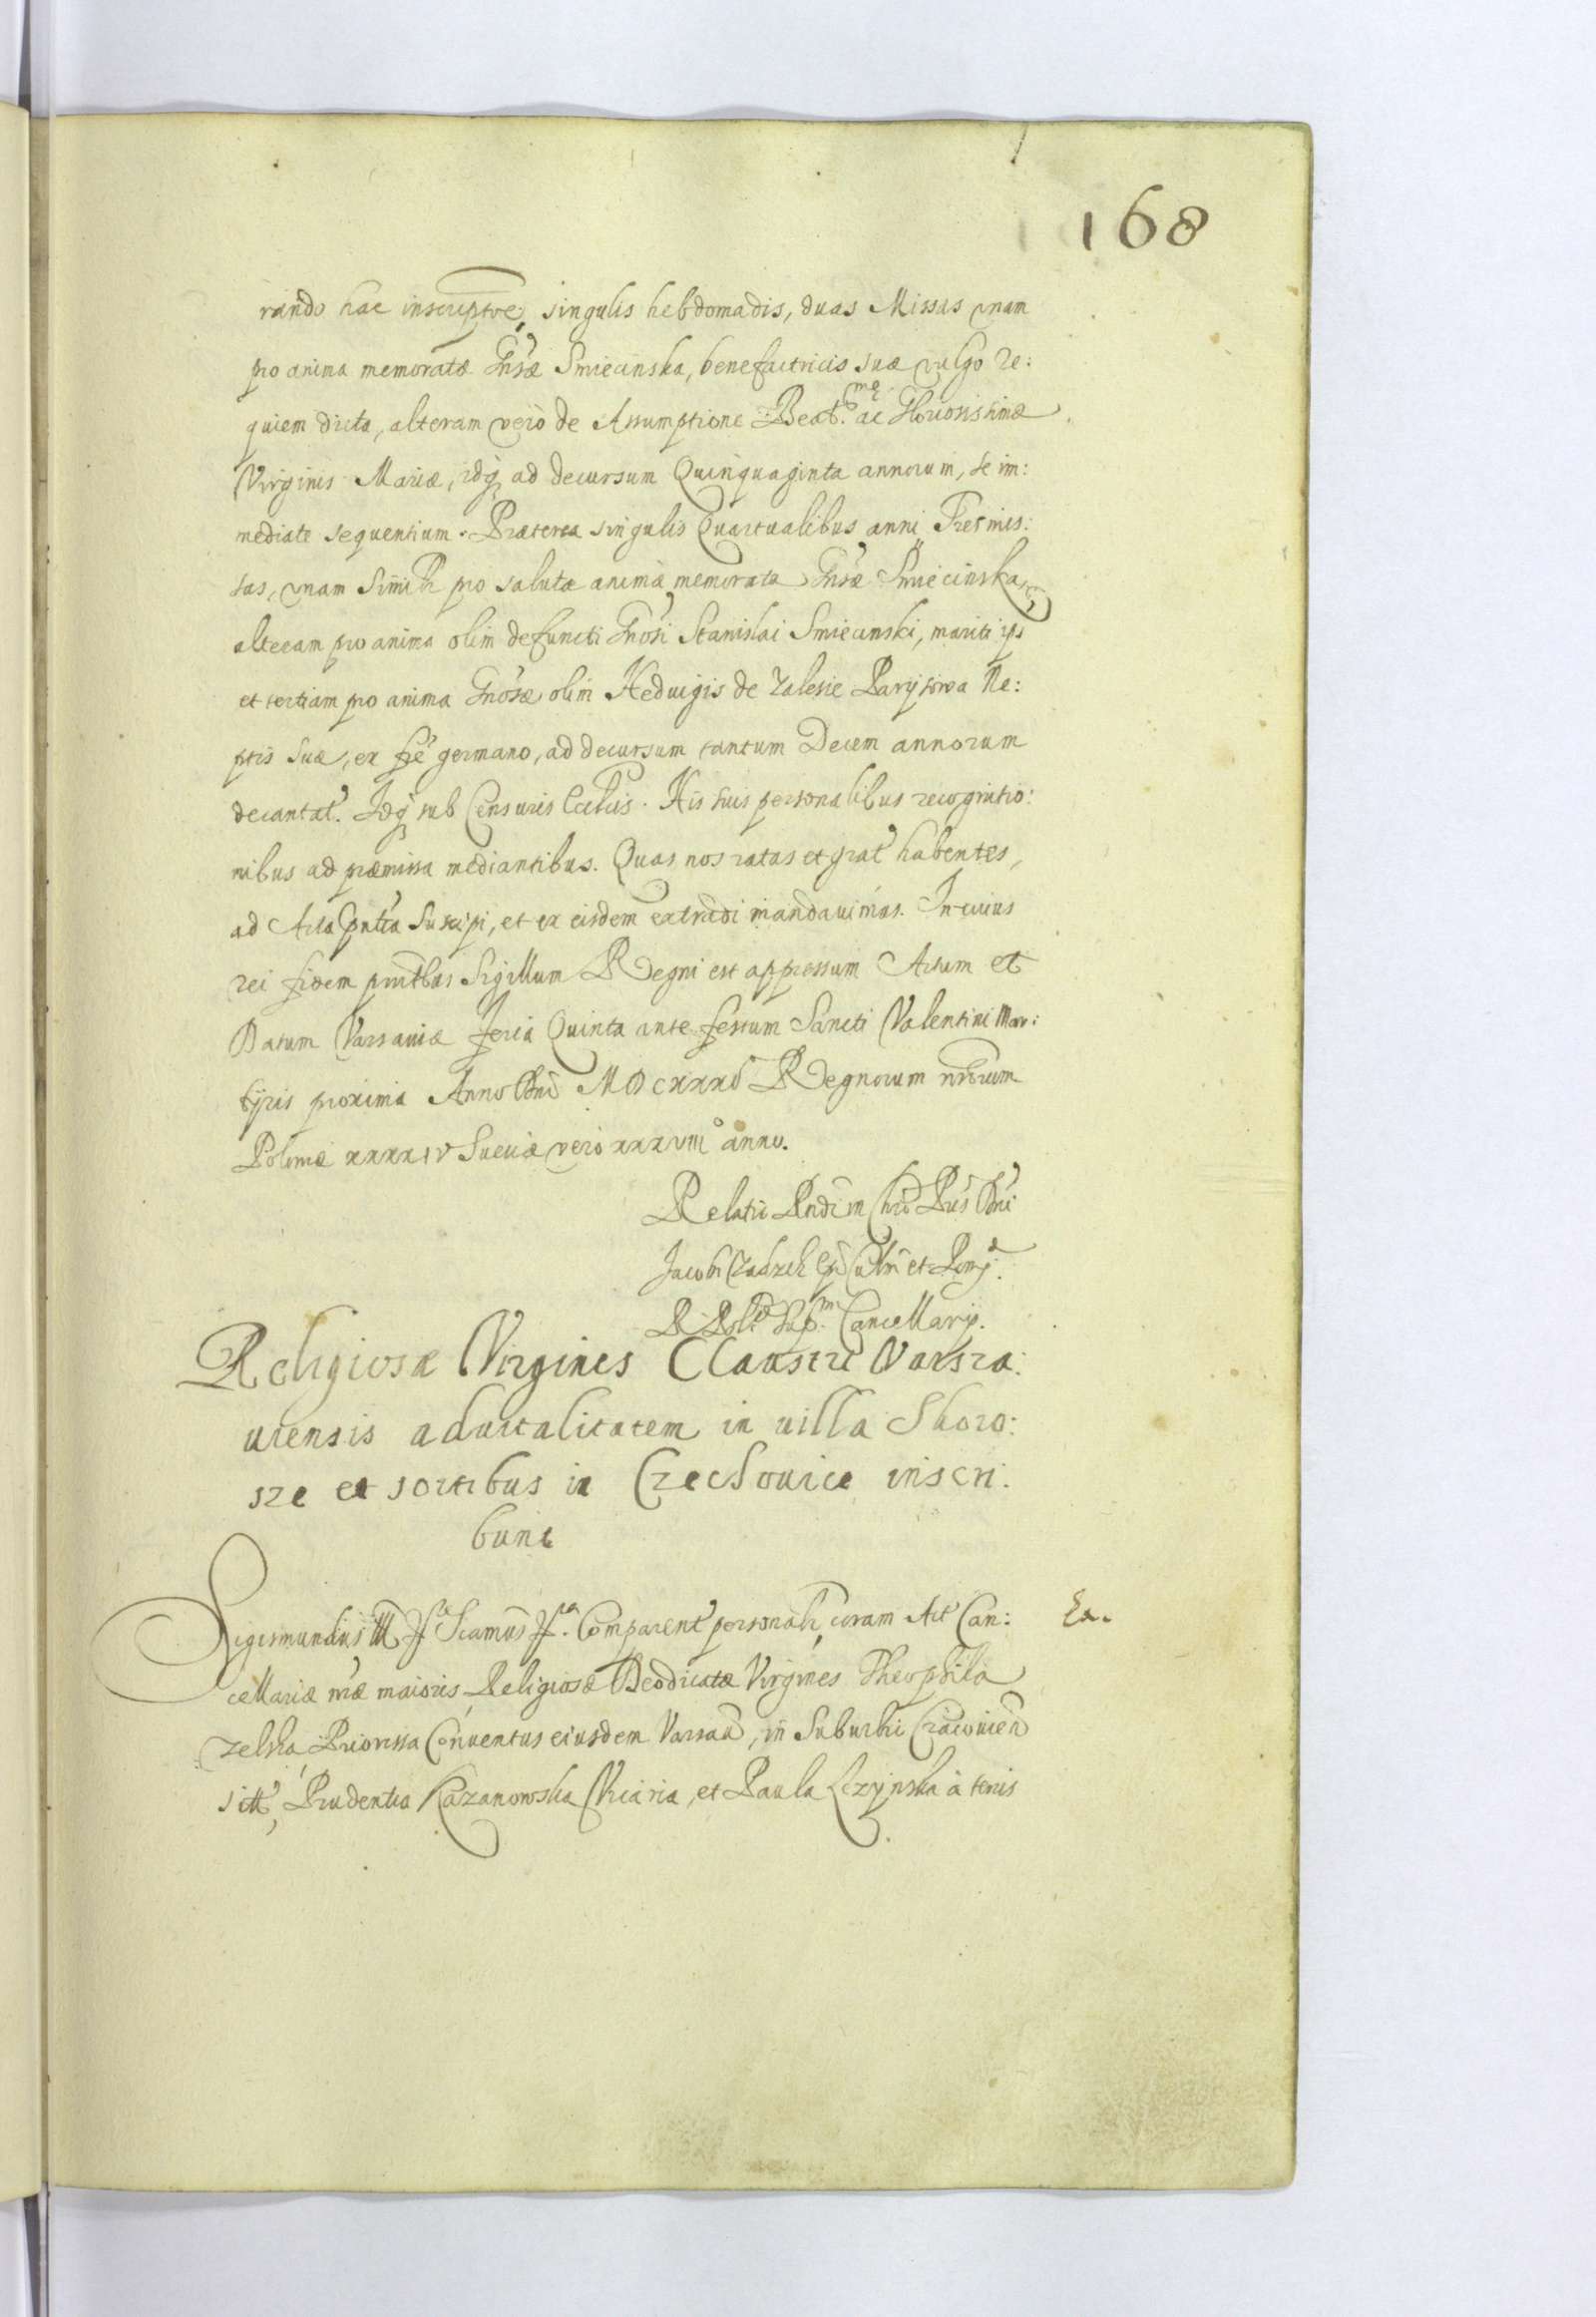 168
rando hac inscriptōe, singulis hebdomadis, duas Missas vnam
pro anima memoratæ Gnsæ Smiecinska, benefactricis suæ vulgo Re:
quiem dicta, alteram vero de Assumptione Beatmę ac Gloriosissimæ
Virginis Mariæ, idq ad decursum Quinquaginta annorum, se im:
mediate sequentium. Præterea singulis Quartualibus anni Tres mis:
sas, vnam Simili pro salutæ animæ memorata Gnsæ Smiecinska,
alteram pro anima olim defuncti Gnosi Stanislai Smiecinski, mariti ips
et tertiam pro anima Gnosæ olim Heduigis de Zalesie Parysowa Ne:
ptis suæ, ex fre germano, ad decursum tantum Decem annorum
decantat. Idq sub Censuris Ecclis. His suis personalibus recognitio:
nibus ad præmissa mediantibus. Quas nos ratas et grat habentes,
ad Acta pntia suscipi, et ex eisdem extradi mandauimus. In cuius
rei fidem pntibus Sigillum Regni est appressum Actum et
Datum Varsauiæ feria Quinta ante festum Sancti Valentini Mar:
tyris proxima Anno Dni MDCXXXI Regnorum nrorum
Poloniæ XXXXIV Sueciæ vero XXXVIII anno.
Relatio Rndi in Chro Pris Dni
Jacobi Zadzik Epi Culmn et Pom.
R Pol. Sup. Cancellarij.
Religiosæ Virgines Claustri Varsza:
uiensis aduitalitatem in uilla Skoro:
sze et sortibus in Czechouice inscri:
bunt
Sigismundus III Scamus Comparent personalr coram Act Can: Ex.
cellariæ nræ maioris Religiosæ Deodicatæ Virgines Theophila
Zelska Priorissa Conuentus eiusdem Varsau, in Suburbi Cracouien
sitt, Prudentia Kazanowska Vicaria, et Paula à tenis